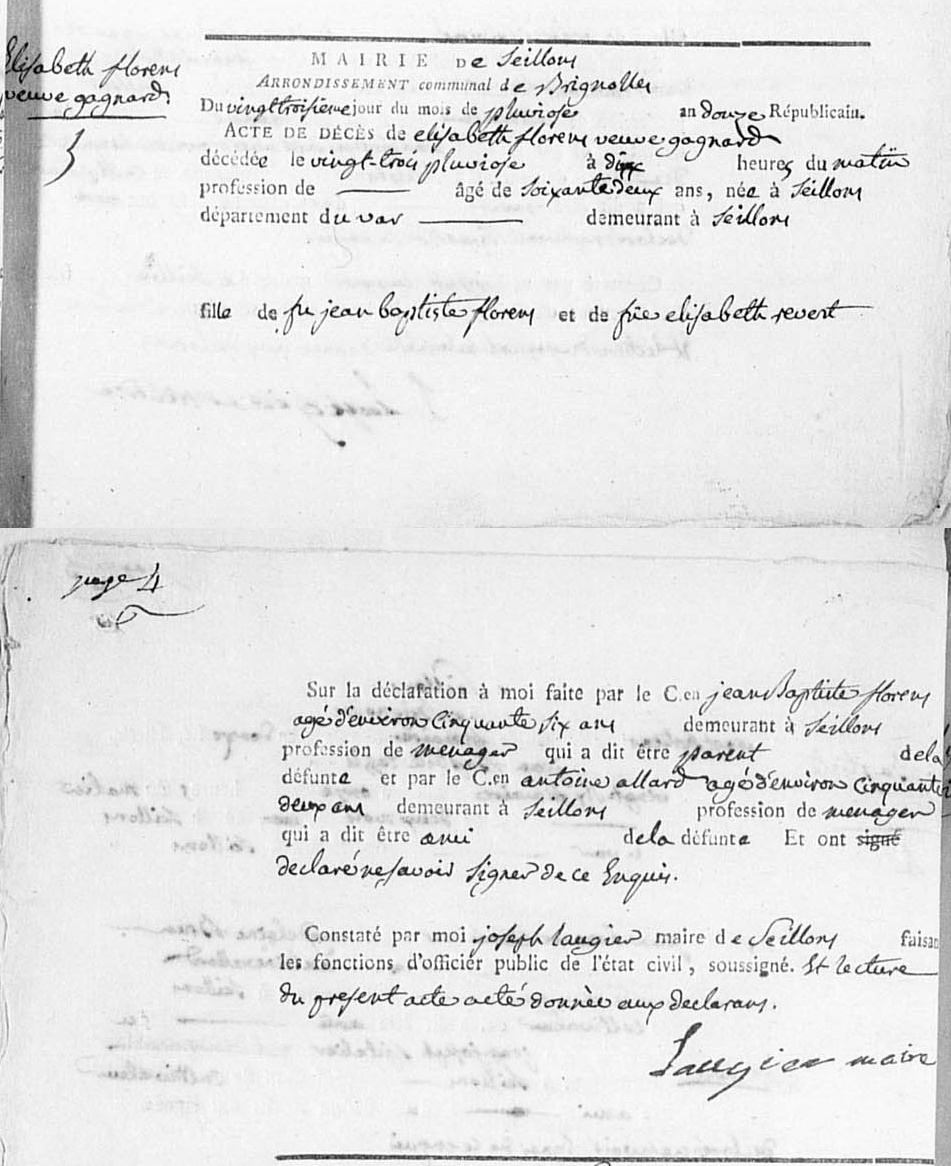 Elisabeth florens
veuve gagnard
MAIRIE DE Seillons
ARRONDISSEMENT communal de Brignolles
Du vingt troisieme jour du mois de pluviose an douze Républicain.
ACTE DE DÉCÈS de elisabeth florens veuve gagnard
décédée le vingt-trois pluviose à dix heures du matin
profession de âgé de soixante deux ans, née à Seillons
département du var demeurant à Seillons
fille de feu jean baptiste florens et de füe elisabeth revert
page 4
Sur la déclaration à moi faite par le C.en jean Baptiste florens
agé d'environ cinquante six ans demeurant à Seillons
profession de menager qui a dit être parent dela
défunte et par le C.en antoine allard agé d'environ cinquante
deux ans demeurant à Seillons profession de menager
qui a dit être ami dela défunte Et ont signé
declaré ne savoir signer de ce Enquis.
Constaté par moi joseph laugier maire de Seillons faisan
les fonctions d'officier public de l'état civil, soussigné. Et lecture
du present acte a eté donnée aux declarans.
Laugier maire